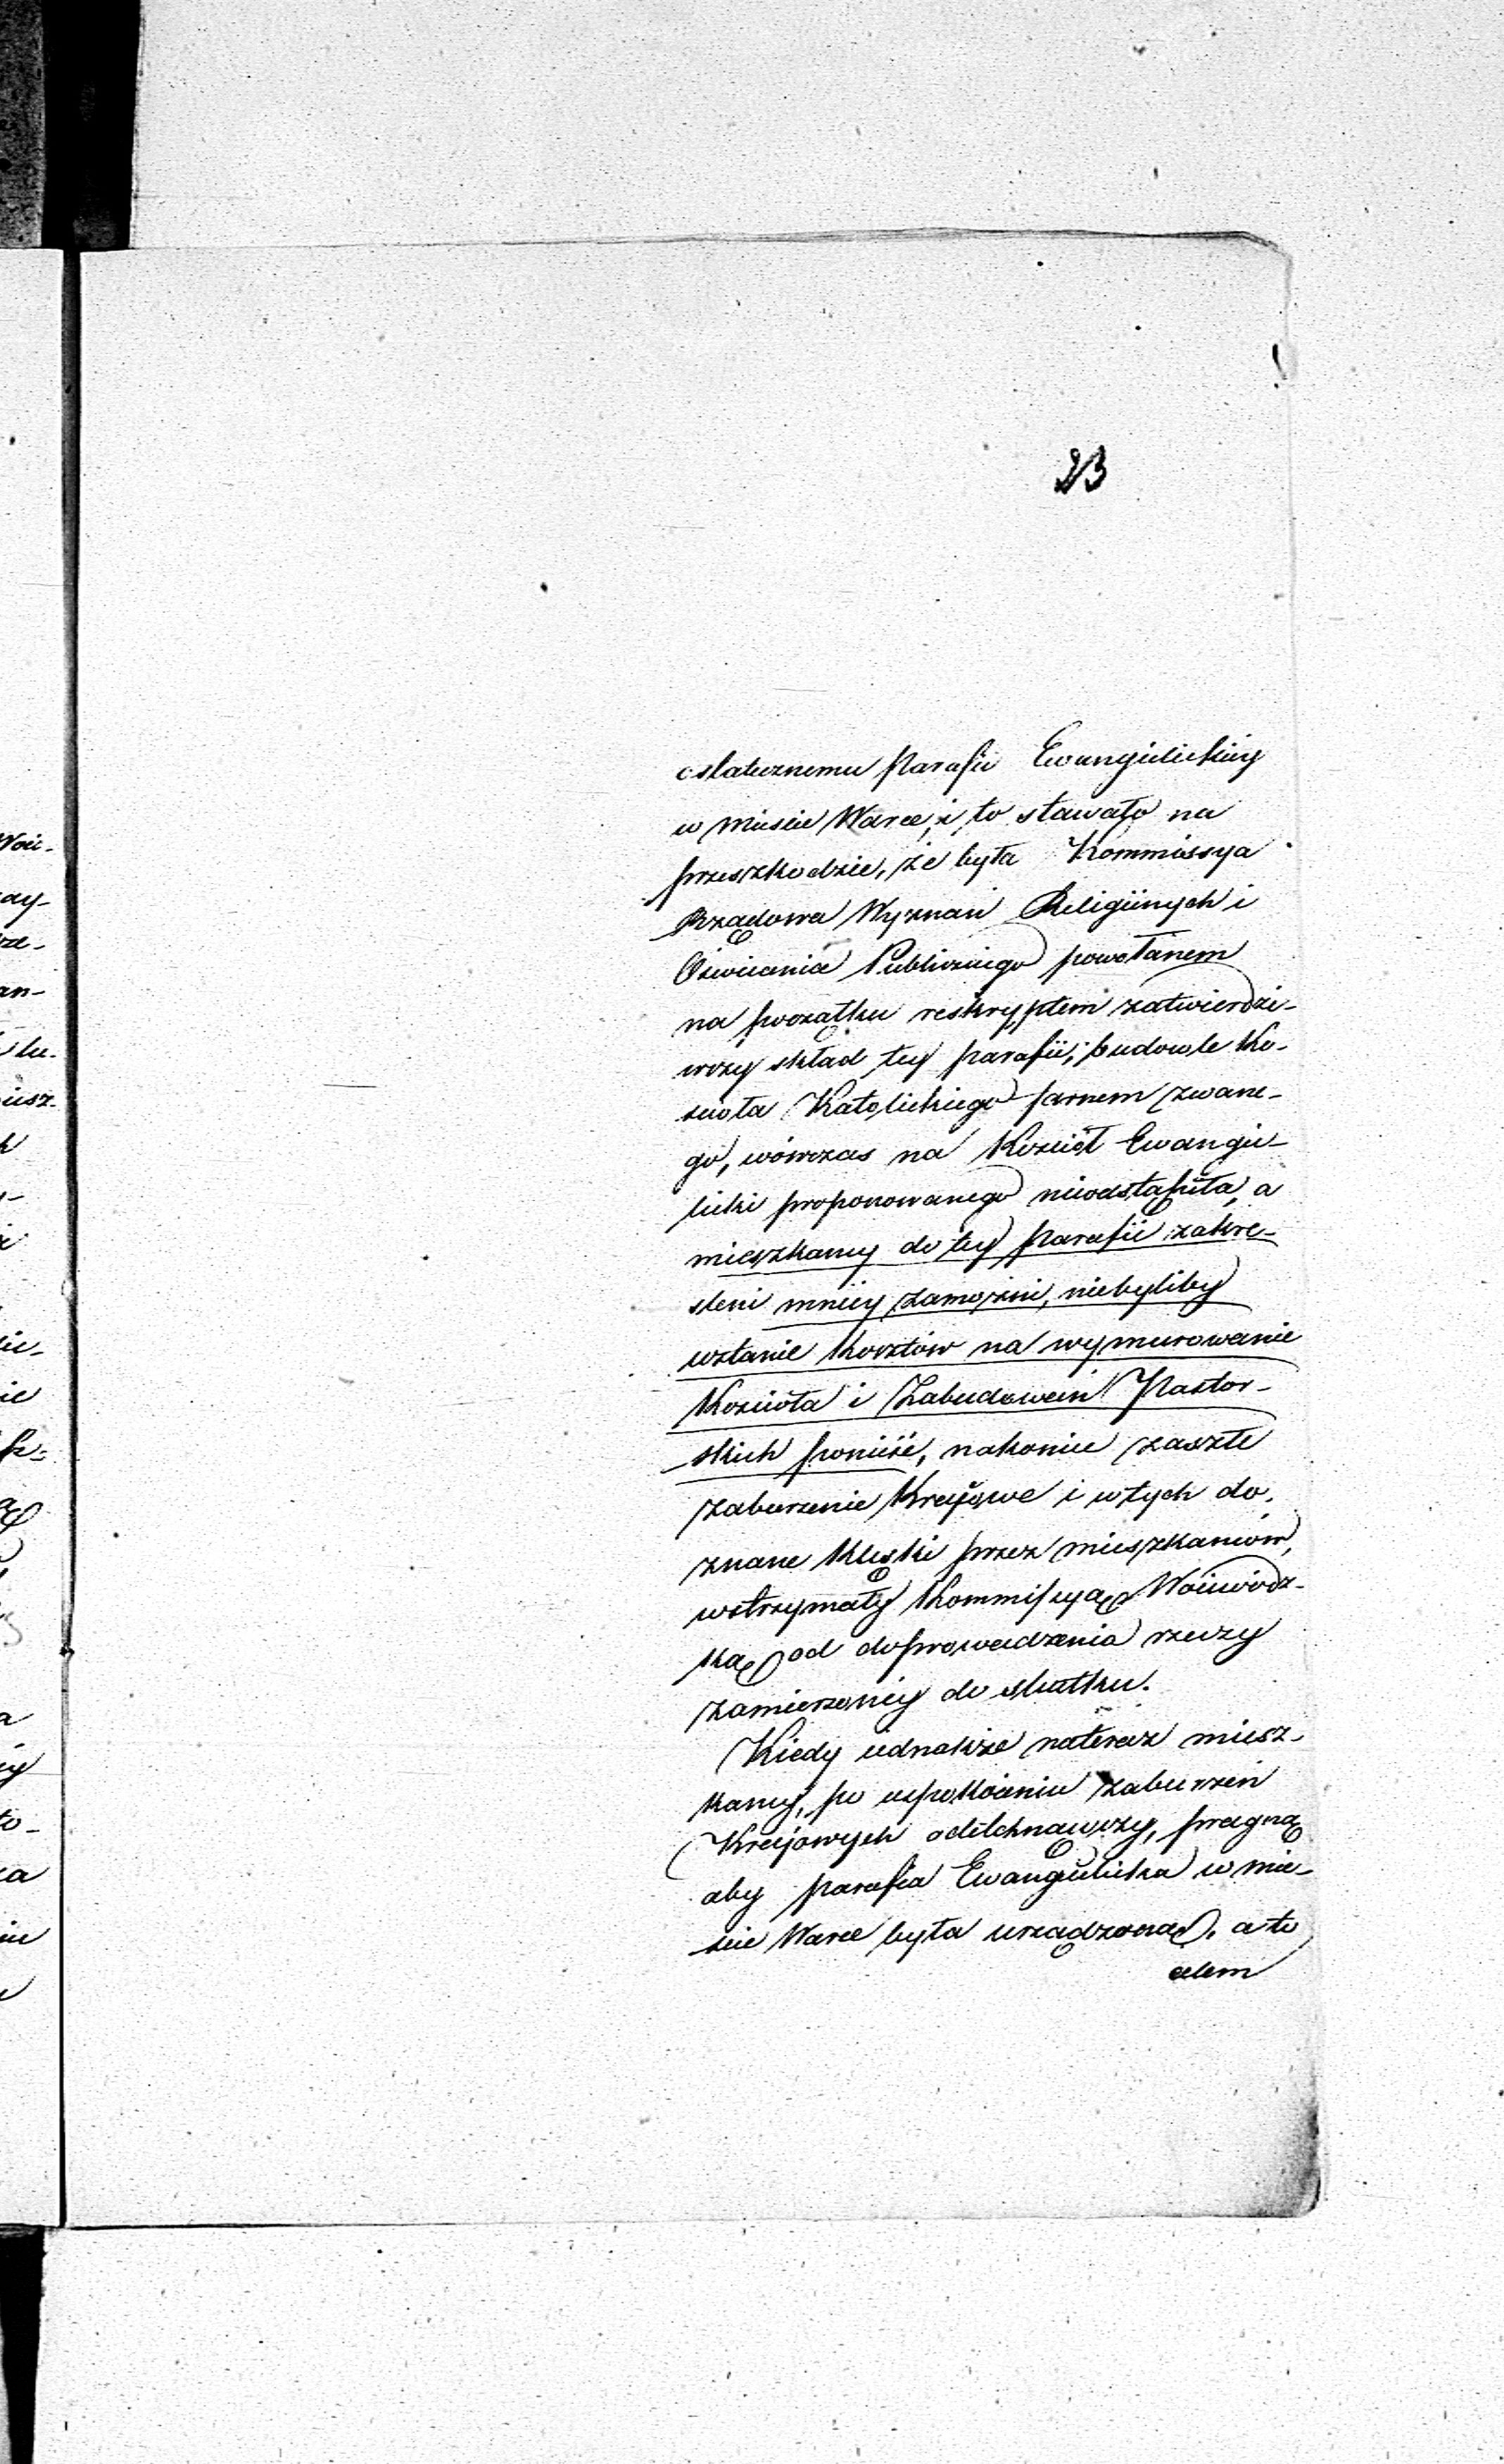 23
ostatecznemu Parafii Ewangielickiey
w mieście Warce, i to stawało na
przeszkodzie, że była Kommissya
Rządowa Wyznań Religiinych i
Oświecenia Publicznego powołanem
na początku reskryptem zatwierdzi-
wszy skład tey parafii, budowle Ko-
ścioła Katolickiego farnem zwane-
go, wówczas na Kościół Ewangie-
licki proponowanego nieodstąpiła, a
mieszkańcy do tey Parafii zakre-
śleni mniey zamożni, niebyliby
wstanie kosztów na wymurowanie
Kościoła i Zabudowań Pastor-
skich ponieść, nakoniec zaszłe
zaburzenie Krajowe i wtych do-
znane klęski przez mieszkańców,
wstrzymały Kommissyą Woiewódz-
ką od doprowadzenia rzeczy
zamierzoney do skutku.
Kiedy iednakże nateraz miesz-
kańcy, po uspokoieniu zaburzeń
Krajowych odetchnąwszy, pragną
aby parafia Ewangielicka w mie-
ście Warce była urządzoną, a to
celem
Woie-